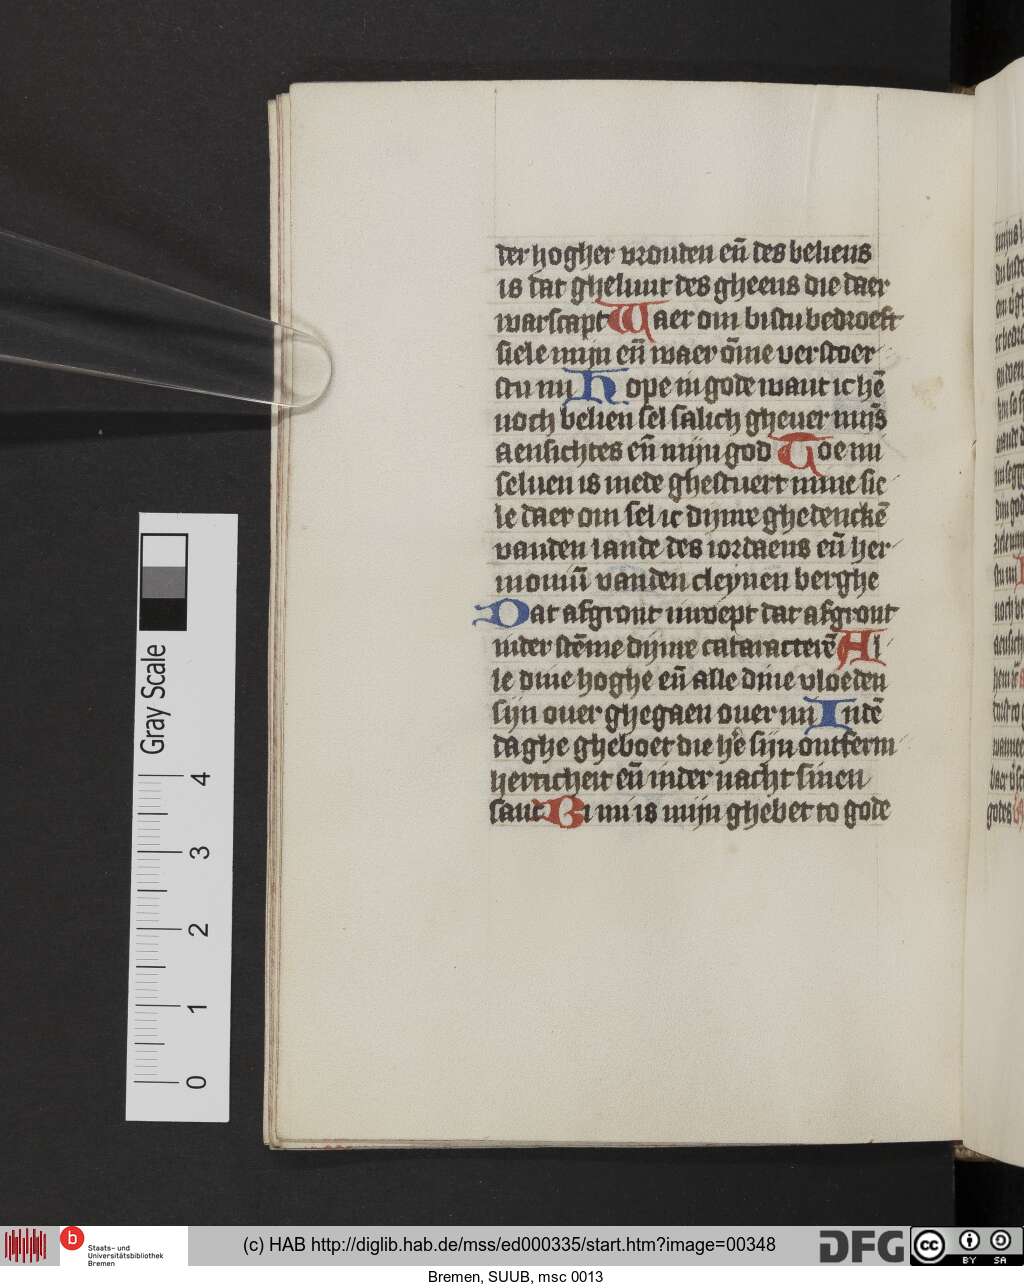 der hogher vrouden en̄ des beliens
is dat gheluut des gheens die daer
warscapt Waer om bistu bedroeft
siele mijn en̄ waer ōme verstoer
stu mi Hope in gode want ic hē
noch belien sel salich ghever mijs̄
aensichtes en̄ mijn god Toe mi
selven is mede ghestuert mine sie
le daer om sel ic dijnre ghedenckē
vanden lande des iordaens en̄ her
moniū vanden cleynen berghe
Dat afgront inroept dat afgront
inder stēme dijnre cataracterē Al
le dine hoghe en̄ alle dine vloeden
sijn over ghegaen over mi In dē
daghe gheboet die hēe sijn ontferm
herticheit en̄ inder nacht sinen
sanc Bi mi is mijn ghebet to gode
Gray Scale
4
3
2
1
0
b
Staats- und
Universitätsbibliothek
Bremen
(c) HAB http://diglib.hab.de/mss/ed000335/start.htm?image=00348
DFG
cc BY SA
Bremen, SUUB, msc 0013